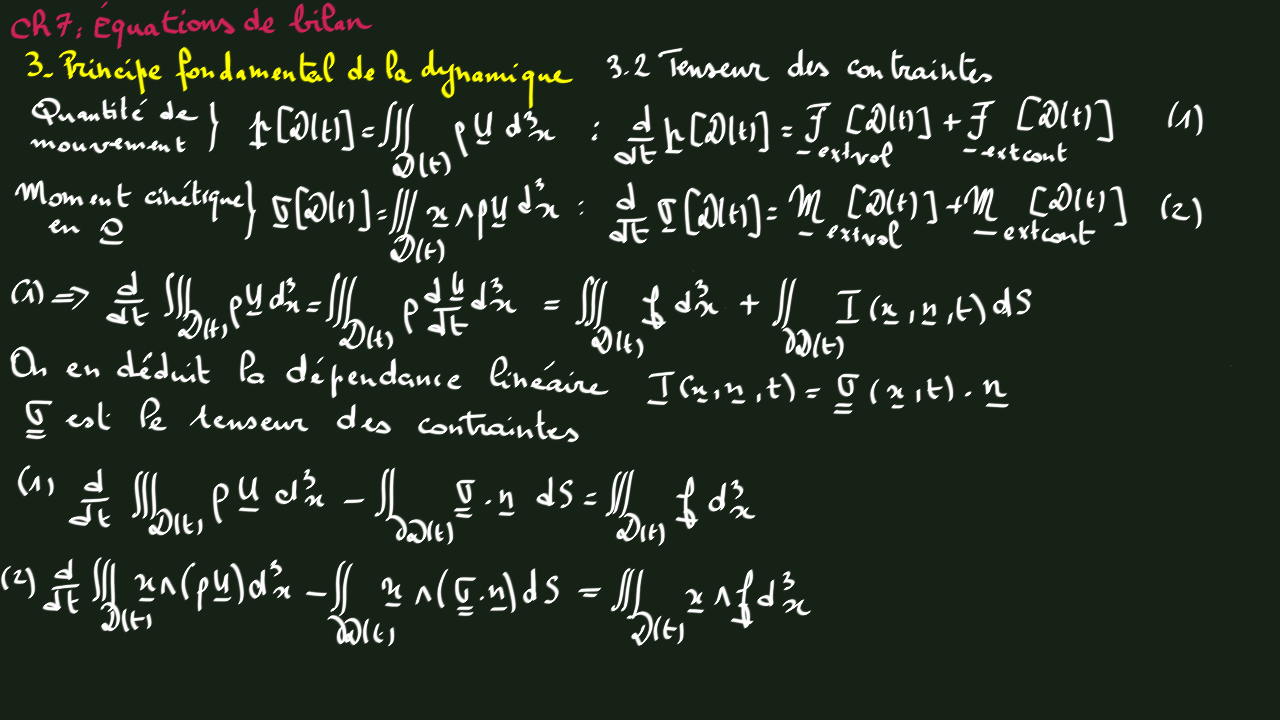 Ch 7: Équations de bilan
3_ Principe fondamental de la dynamique 3.2 Tenseur des contraintes
Quantité de mouvement } p[𝒟(t)] = ∭_𝒟(t) ρ U d³x : d/dt p[𝒟(t)] = F_extvol [𝒟(t)] + F_extcont [𝒟(t)] (1)
Moment cinétique en O } σ[𝒟(t)] = ∭_𝒟(t) x ∧ ρU d³x : d/dt σ[𝒟(t)] = M_extvol [𝒟(t)] + M_extcont [𝒟(t)] (2)
(1) => d/dt ∭_𝒟(t) ρU d³x = ∭_𝒟(t) ρ dU/dt d³x = ∭_𝒟(t) f d³x + ∬_∂𝒟(t) T(x, n, t) dS
On en déduit la dépendance linéaire T(x, n, t) = σ(x, t) . n
σ est le tenseur des contraintes
(1) d/dt ∭_𝒟(t) ρ U d³x − ∬_∂𝒟(t) σ . n dS = ∭_𝒟(t) f d³x
(2) d/dt ∭_𝒟(t) x ∧ (ρU) d³x − ∬_∂𝒟(t) x ∧ (σ . n) dS = ∭_𝒟(t) x ∧ f d³x